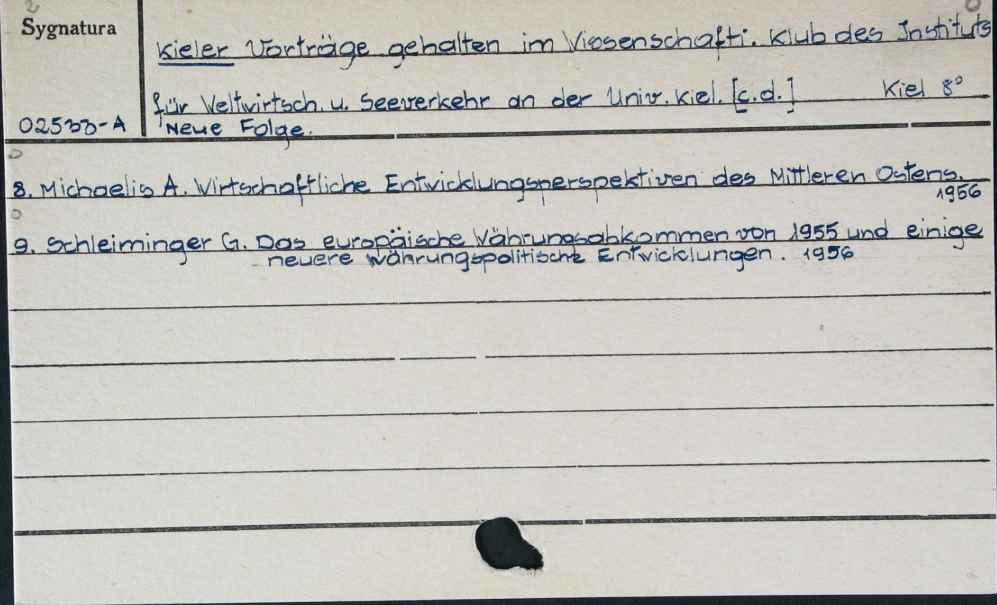 2
Sygnatura
Kieler Vorträge gehalten im Wissenschaftl. Klub des Instituts
für Weltwirtsch. u. Seeverkehr an der Univ. Kiel. [c.d.] Kiel 8°
02533-A Neue Folge.
8. Michaelis A. Wirtschaftliche Entwicklungsperspektiven des Mittleren Ostens.
1956
9. Schleiminger G. Das europäische Währungsabkommen von 1955 und einige
neuere währungspolitische Entwicklungen. 1956